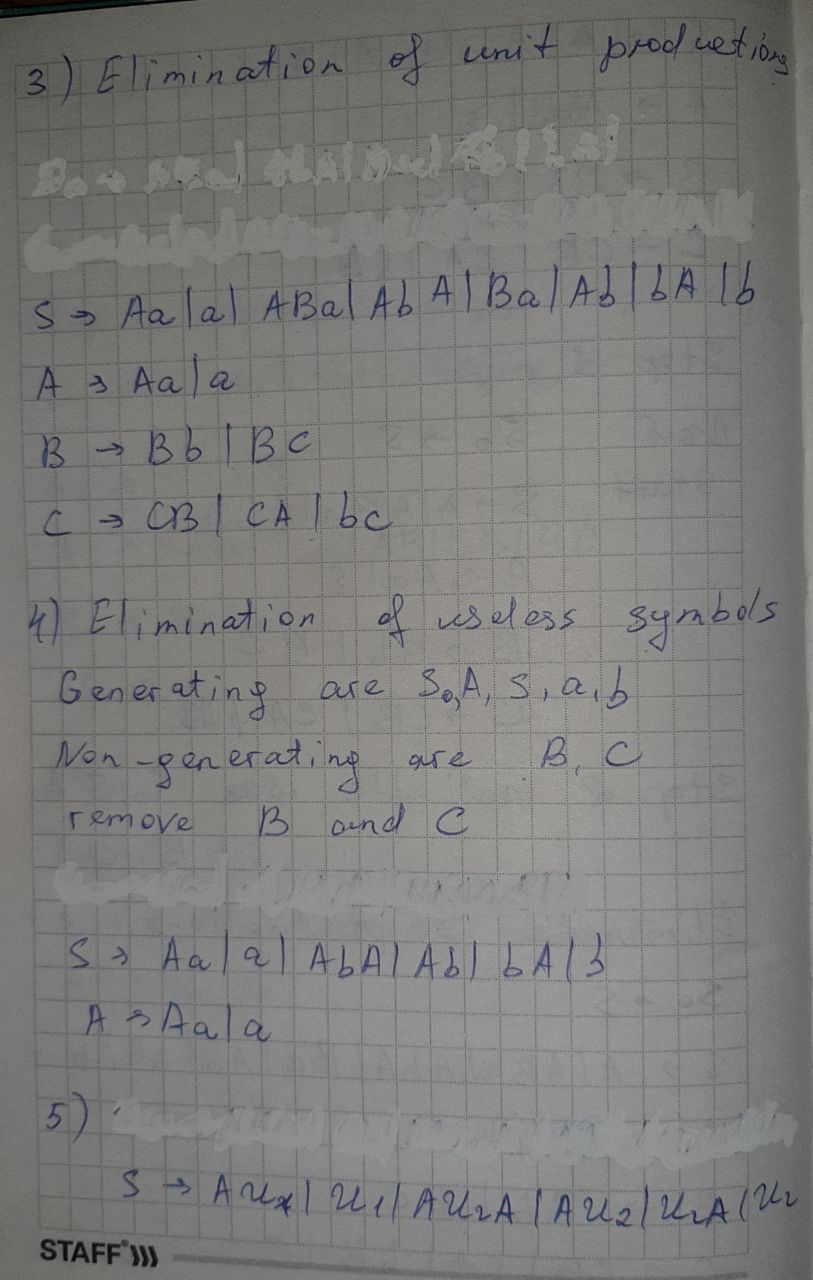 3) Elimination of unit productions
S → Aa | a | ABa | AbA | Ba | Ab | bA | b
A → Aa | a
B → Bb | BC
C → CB | CA | bC
4) Elimination of useless symbols
Generating are S₀, A, S, a, b
Non-generating are B, C
remove B and C
S → Aa | a | AbA | Ab | bA | b
A → Aa | a
5)
S → AU₁ | U₁ | AU₂A | AU₂ | U₂A | U₂
STAFF